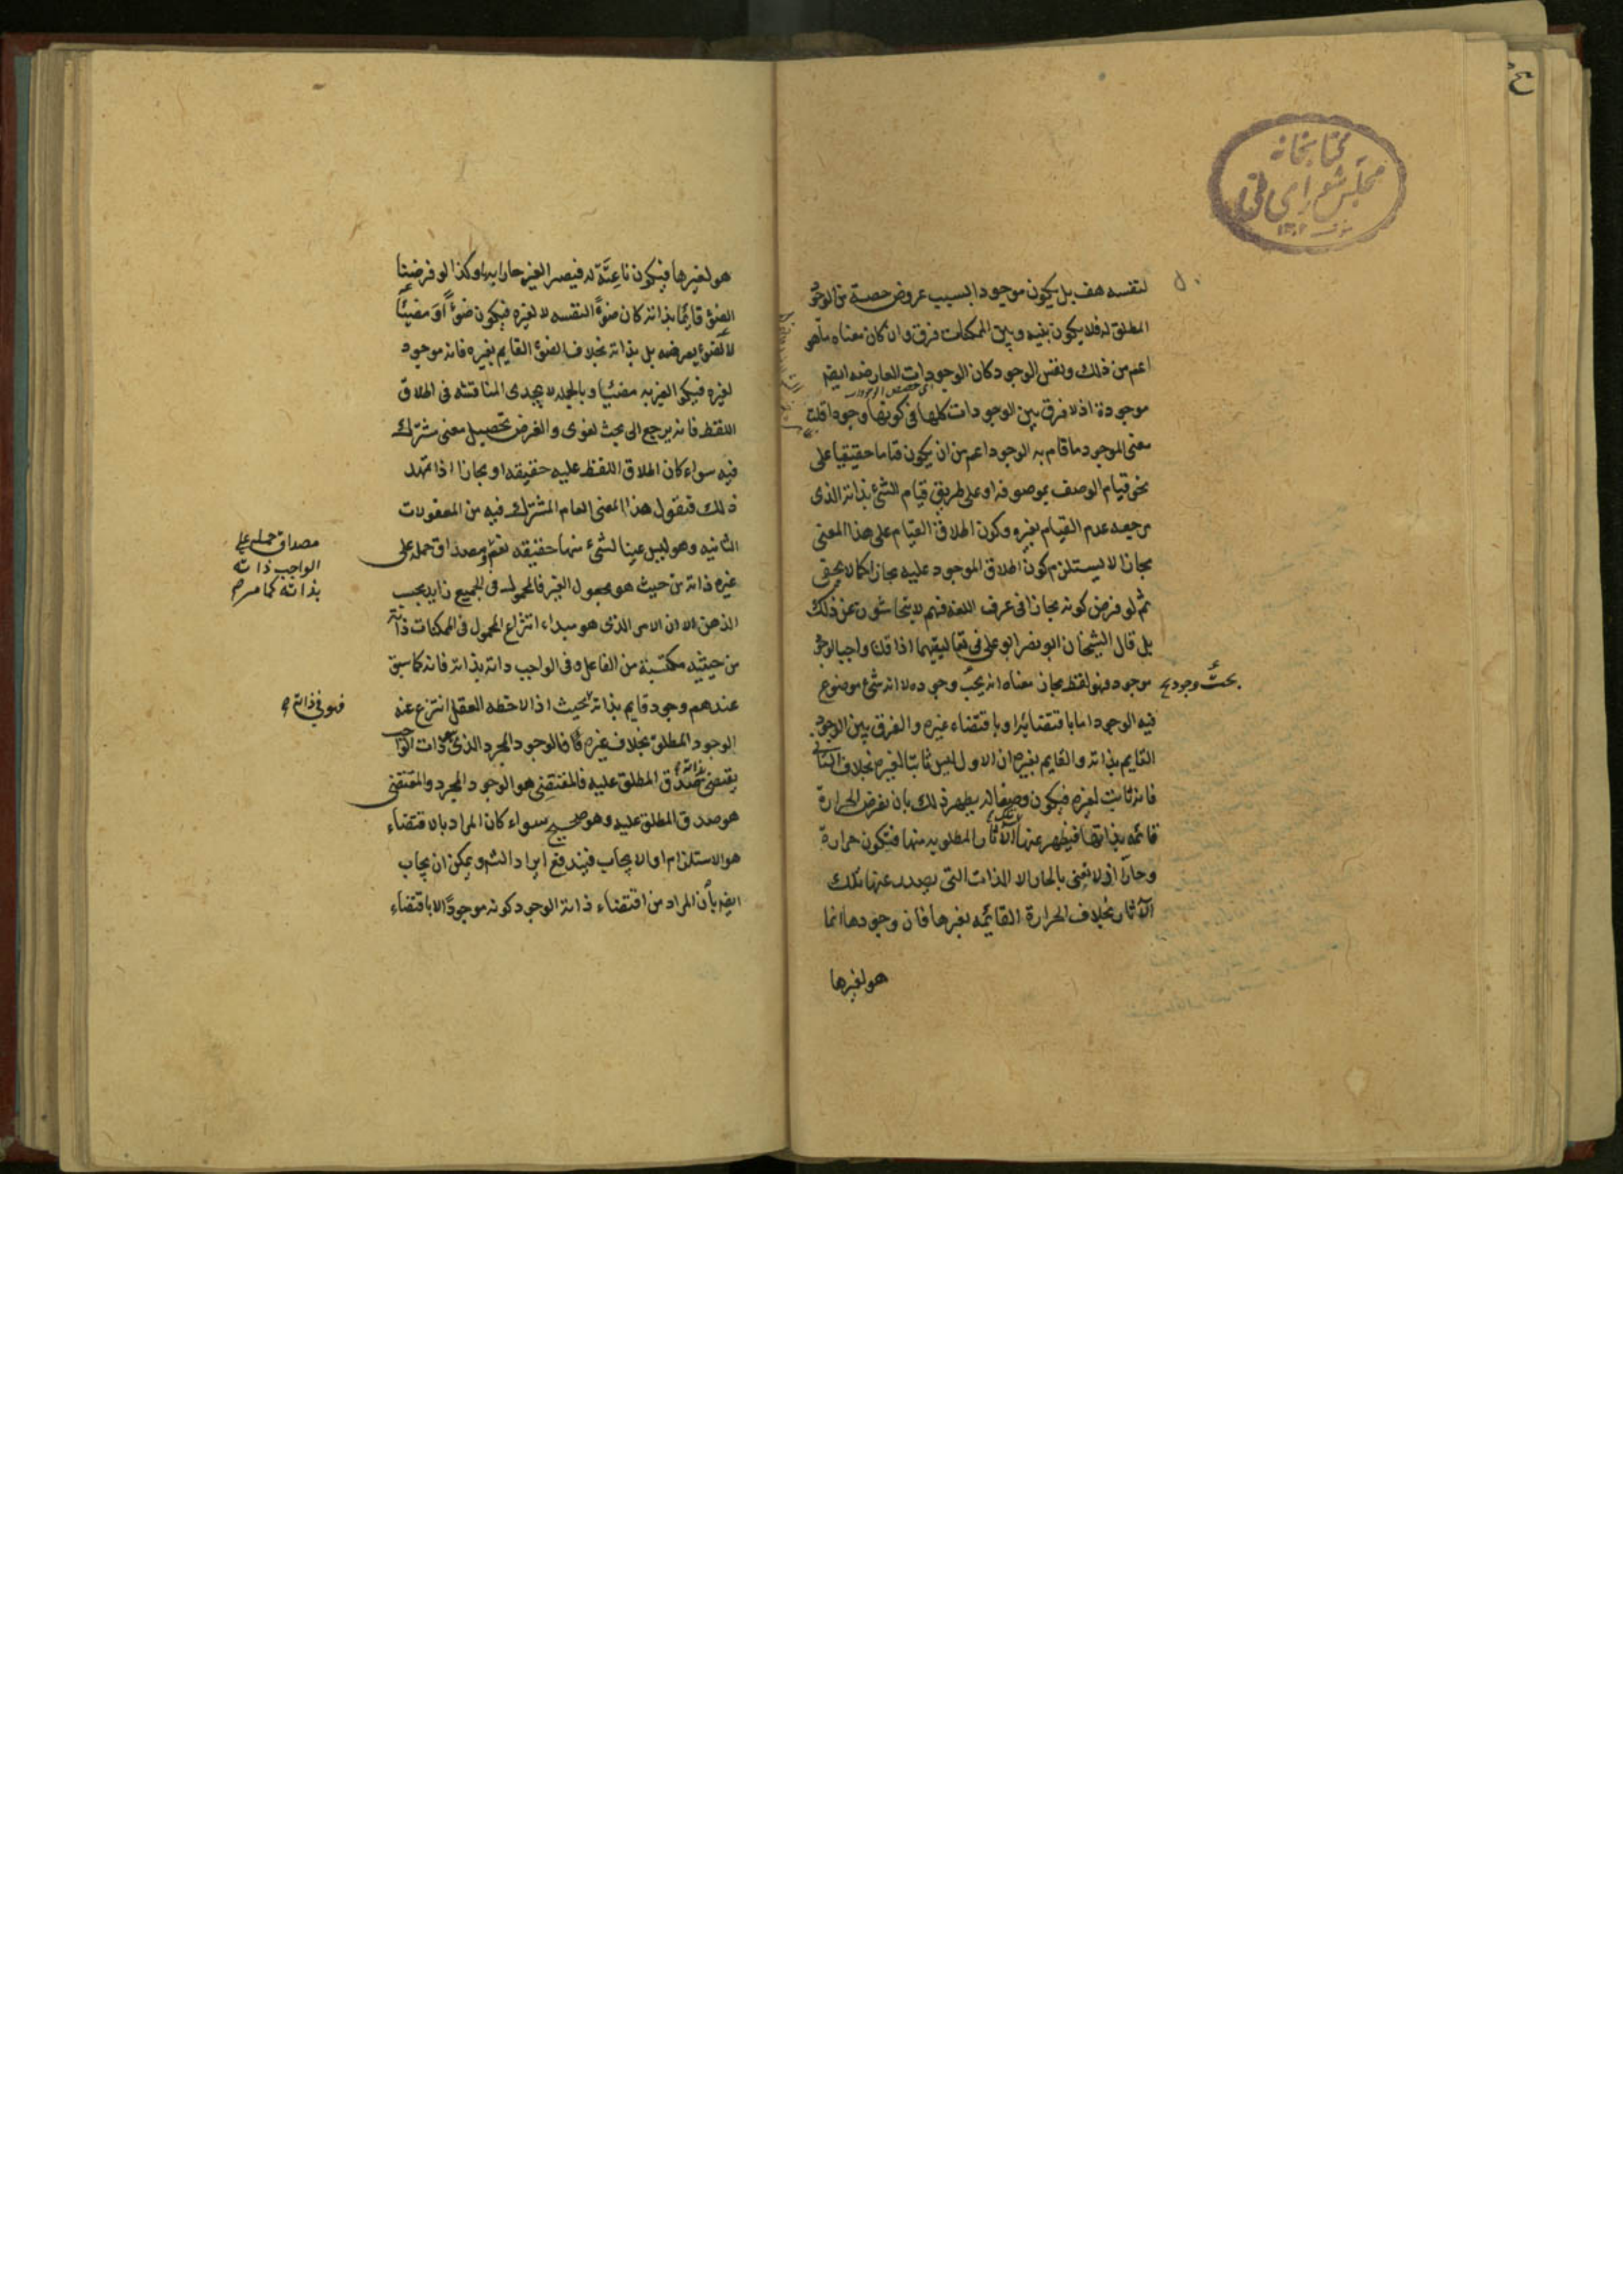 كتابخانه
مجلس شورای ملی
لنفسه هف بل يكون موجودا بسبب عروض حصة من الوجود
المطلق له فلا يكون بينه وبين الممكنات فرق وان كان معناه ما هو
اعم من ذلك ونفس الوجود كان الوجودات العارضه ايضم
موجودة اذ لا فرق بين الوجودات كلها في كونها وجودا قلت
معنى الموجود ما قام به الوجود اعم من ان يكون قياما حقيقيا على
نحو قيام الوصف بموصوفه او على طريق قيام الشئ بذاته الذى
مرجعه عدم القيام بغيره وكون اطلاق القيام على هذا المعنى
مجازا لا يستلزم كون اطلاق الموجود عليه مجازا كما لا يخفى
ثم لو فرض كونه مجازا فى عرف اللغه فهم لا يتحاشون عن ذلك
بل قال الشيخان ابو نصر ابو على فى تعاليقهما اذا قلنا واجب الوجود
موجود فهو لفظ مجاز معناه انه يجب وجوده لا انه شئ موضوع
فيه الوجود اما باقتضائه او باقتضاء غيره والفرق بين الوجود
القايم بذاته والقايم بغيره ان الاول ليس ثابتا لغيره بخلاف الثانى
فانه ثابت لغيره فيكون وصفا له يظهر ذلك بان نفرض الحرارة
قائمه بذاتها فيظهر عنها الآثار المطلوبه منها فتكون حرارة
وحارا اذ لا نعنى بالحار الا الذات التى يصدر عنها تلك
الآثار بخلاف الحرارة القائمه بغيرها فان وجودها انما
هو لغيرها
هو لغيرها فيكون ناعتة له فيصير الغير حارا بها وكذا لو فرضنا
الضوء قائما بذاته كان ضوءا لنفسه لا لغيره فيكون ضوءا ومضيئا
لا لضوء يعرضه بل بذاته بخلاف الضوء القايم بغيره فانه موجود
لغيره فيكون الغير به مضيئا وبالجمله لا يجدى المناقشه فى اطلاق
اللفظ فانه يرجع الى بحث لغوى والغرض تحصيل معنى مشترك
فيه سواء كان اطلاق اللفظ عليه حقيقه او مجازا اذا تمهد
ذلك فنقول هذا المعنى العام المشترك فيه من المعقولات
الثانيه وهو ليس عينا لشئ منها حقيقه نعم مصداق حمله على
مصداق حمله على
الواجب ذاته
بذاته كما مر
غيره ذاته من حيث هو مجعول الغير فالمحمول فى الجميع زايد بحسب
الذهن الا ان الامر الذى هو مبداء انتزاع المحمول فى الممكنات ذاته
من حيثيه مكتسبة من الفاعل وفى الواجب ذاته بذاته فانه كما سبق
عندهم وجود قايم بذاته بحيث اذا لاحظه العقل انتزع عنه
فهو فى ذاته
الوجود المطلق بخلاف غيره فان الوجود المجرد الذى هو ذات الواجب
يقتضى بذاته صدق المطلق عليه فالمقتضِى هو الوجود المجرد والمقتضى
هو صدق المطلق عليه وهو صحيح سواء كان المراد بالاقتضاء
هو الاستلزام او الايجاب فيندفع ايراد الشم ويمكن ان يجاب
ايضم بأن المراد من اقتضاء ذاته الوجود كونه موجودا لا باقتضاء